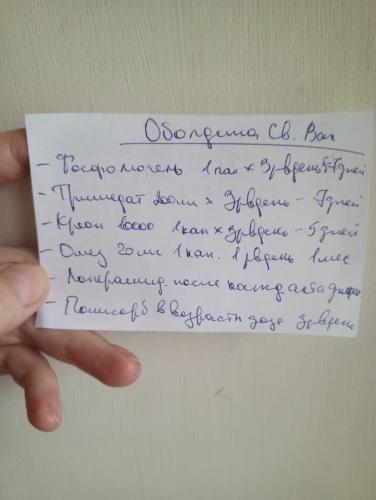 Оболдина Св. Вал
- Фосфомочень 1 пак × 3рвдень 5-7дней
- Тримедат 200мг × 3рвдень - 7дней
- Креон 10000 1кап × 3рвдень - 5 дней
- Омез 20мг 1 кап. 1 рвдень 1мес
- Лоперамид. после кажд акта
- Полисорб в возрастн дозе 3рвдень